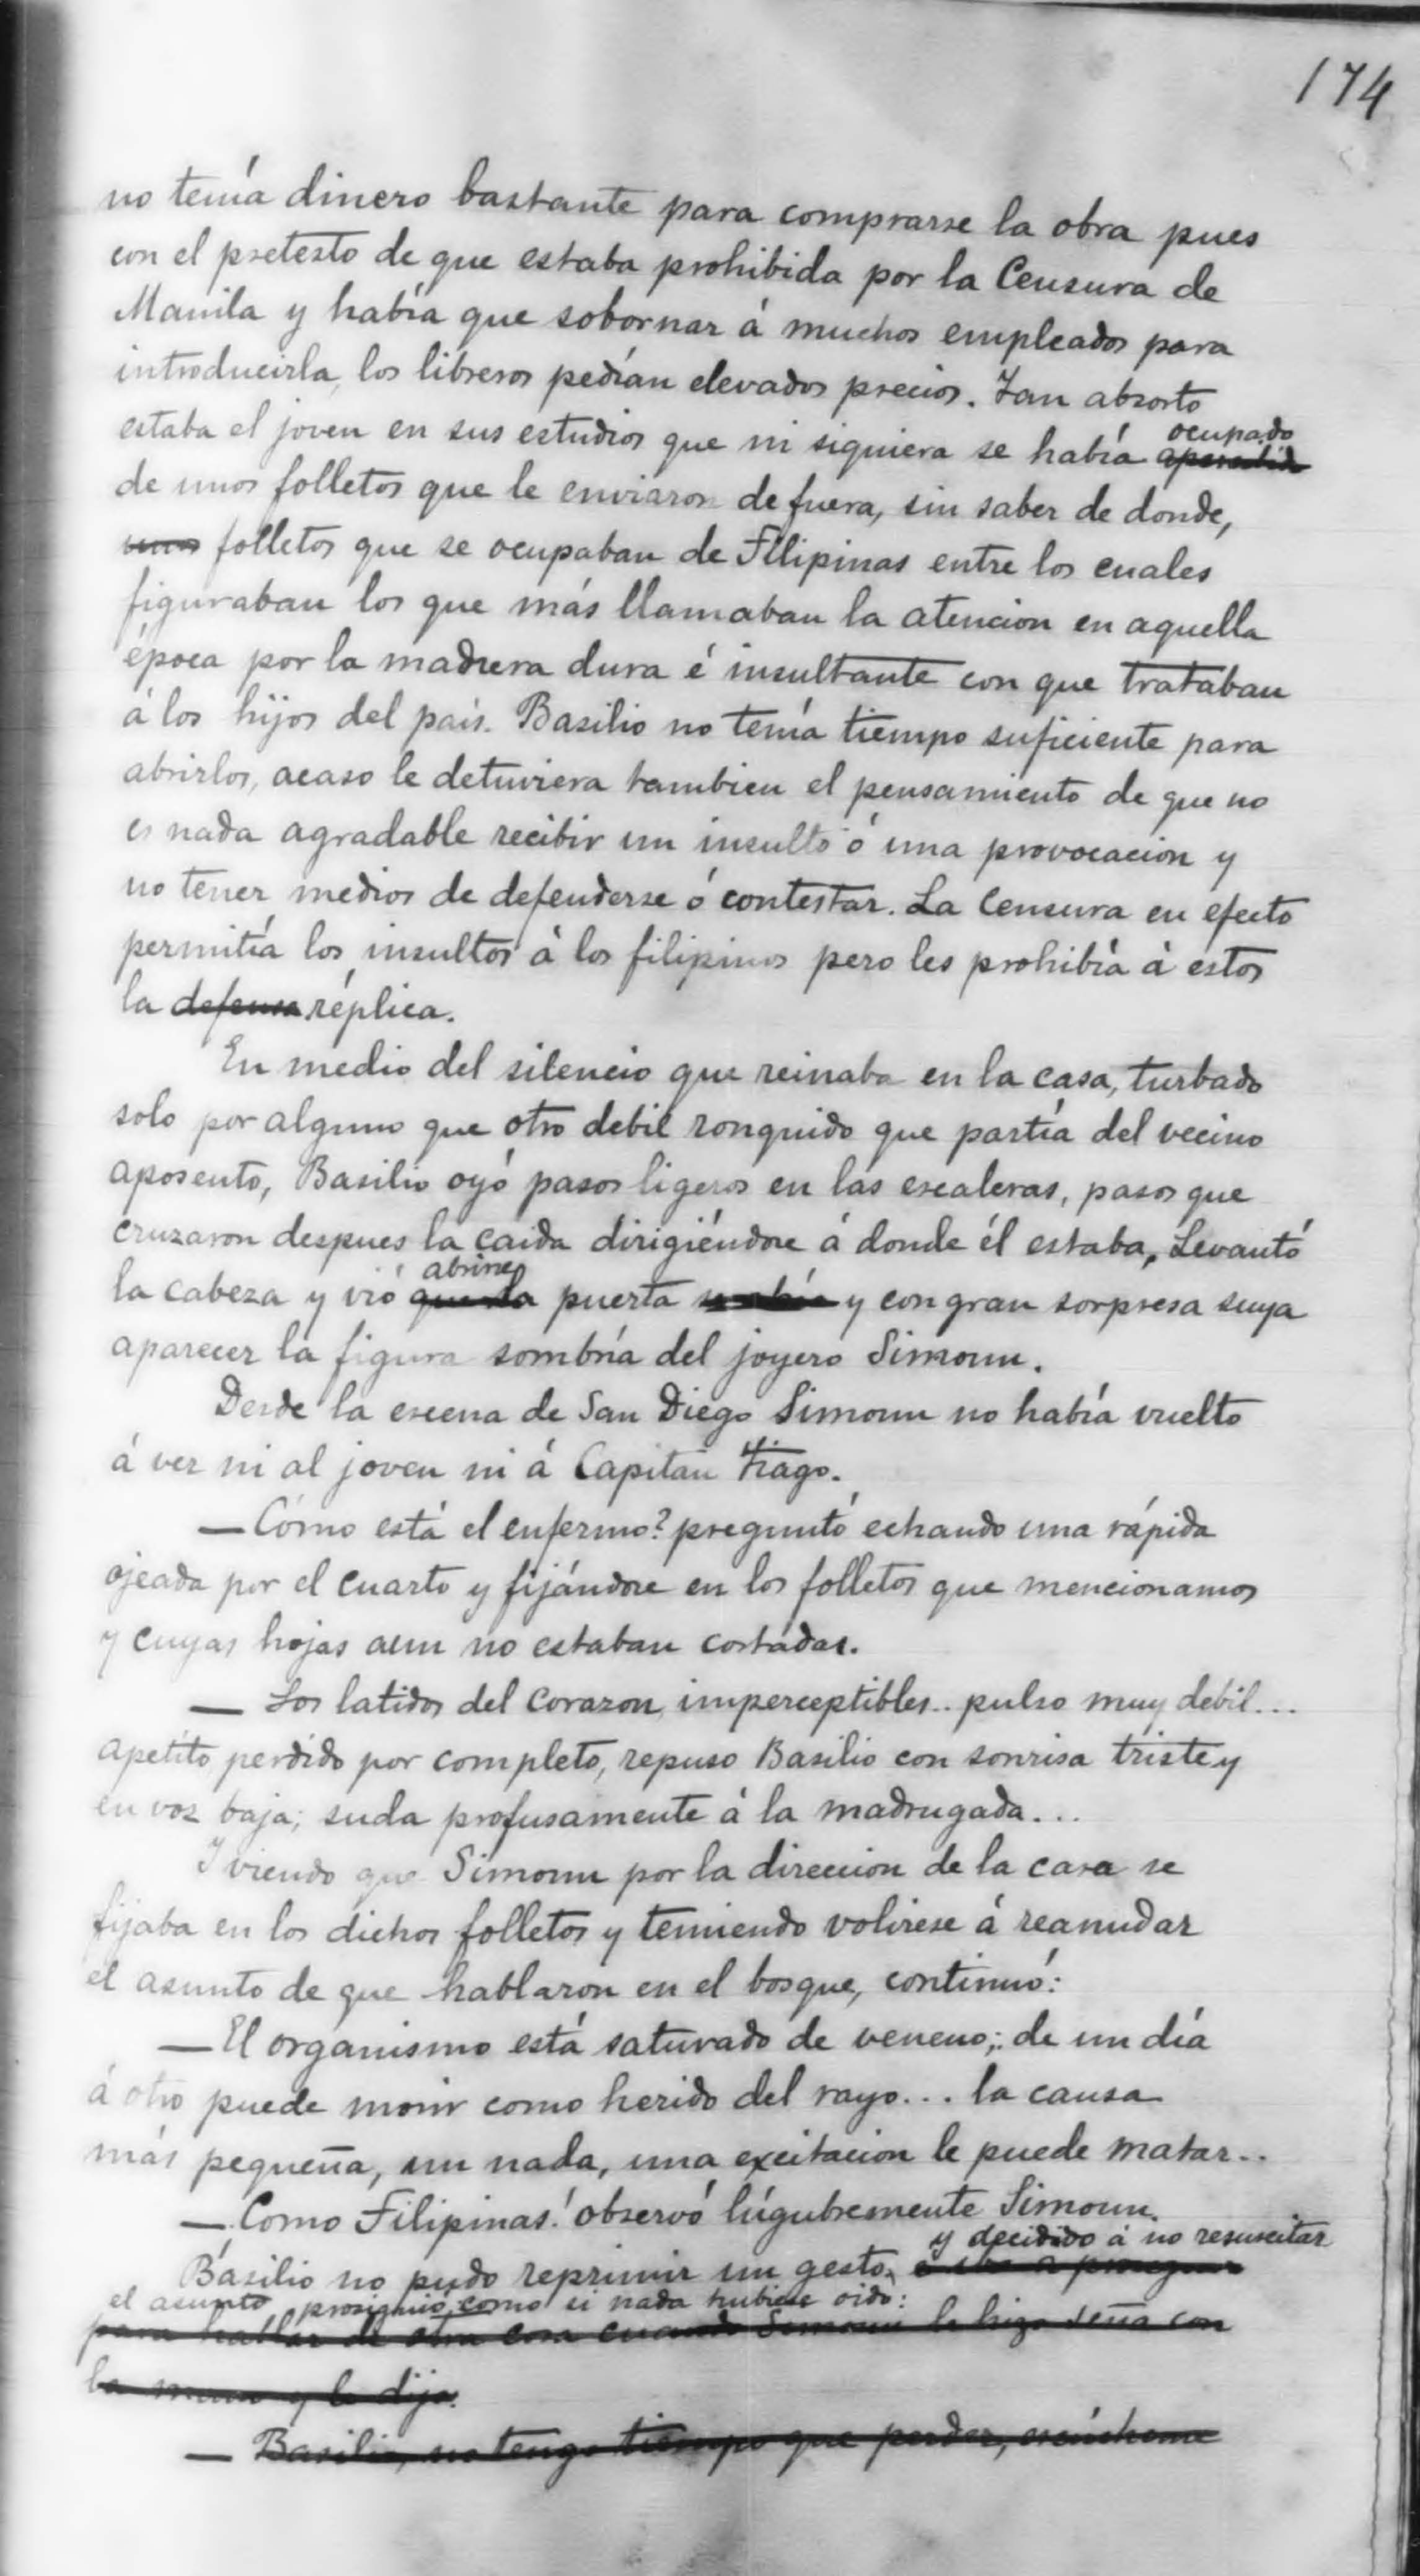 174
no tenía dinero bastante para comprarse la obra pues
con el pretesto de que estaba prohibida por la Censura de
Manila y había que sobornar á muchos empleados para
introducirla, los libreros pedían elevados precios. Tan absorto
estaba el joven en sus estudios que ni siquiera se había ocupado
de unos folletos que le enviaron de fuera, sin saber de donde,
unos folletos que se ocupaban de Filipinas entre los cuales
figuraban los que más llamaban la atencion en aquella
época por la madrera dura é insultante con que trataban
á los hijos del país. Basilio no tenía tiempo suficiente para
abrirlos, acaso le detuviera tambien el pensamiento de que no
es nada agradable recibir un insulto ó una provocacion y
no tener medios de defenderse ó contestar. La Censura en efecto
permitía los insultos á los filipinos pero les prohibía á estos
la defensa réplica.
En medio del silencio que reinaba en la casa, turbado
solo por alguno que otro debil ronquido que partía del vecino
aposento, Basilio oyó pasos ligeros en las escaleras, pasos que
cruzaron despues la caida dirigiéndose á donde él estaba. Levantó
la cabeza y vió que la abrirse puerta se abría y con gran sorpresa suya
aparecer la figura sombría del joyero Simoun.
Desde la escena de San Diego Simoun no había vuelto
á ver ni al joven ni á Capitan Tiago.
— Cómo está el enfermo? preguntó echando una rápida
ojeada por el cuarto y fijándose en los folletos que mencionamos
y cuyas hojas aun no estaban cortadas.
— Los latidos del corazon, imperceptibles.. pulso muy debil...
apetito perdido por completo, repuso Basilio con sonrisa triste y
en voz baja; suda profusamente á la madrugada...
Y viendo que Simoun por la direccion de la cara se
fijaba en los dichos folletos y temiendo volviese á reanudar
el asunto de que hablaron en el bosque, continuó:
— El organismo está saturado de veneno; de un día
á otro puede morir como herido del rayo... la causa
más pequeña, un nada, una excitacion le puede matar..
— Como Filipinas! observó lúgubremente Simoun.
Basilio no pudo reprimir un gesto, y decidido á no resuscitar
el asunto, prosiguió como si nada hubiese oido:
para hablar de otra cosa cuando Simoun le hizo seña con
la mano y le dijo:
— Basilio, no tengo tiempo que perder, escúcheme